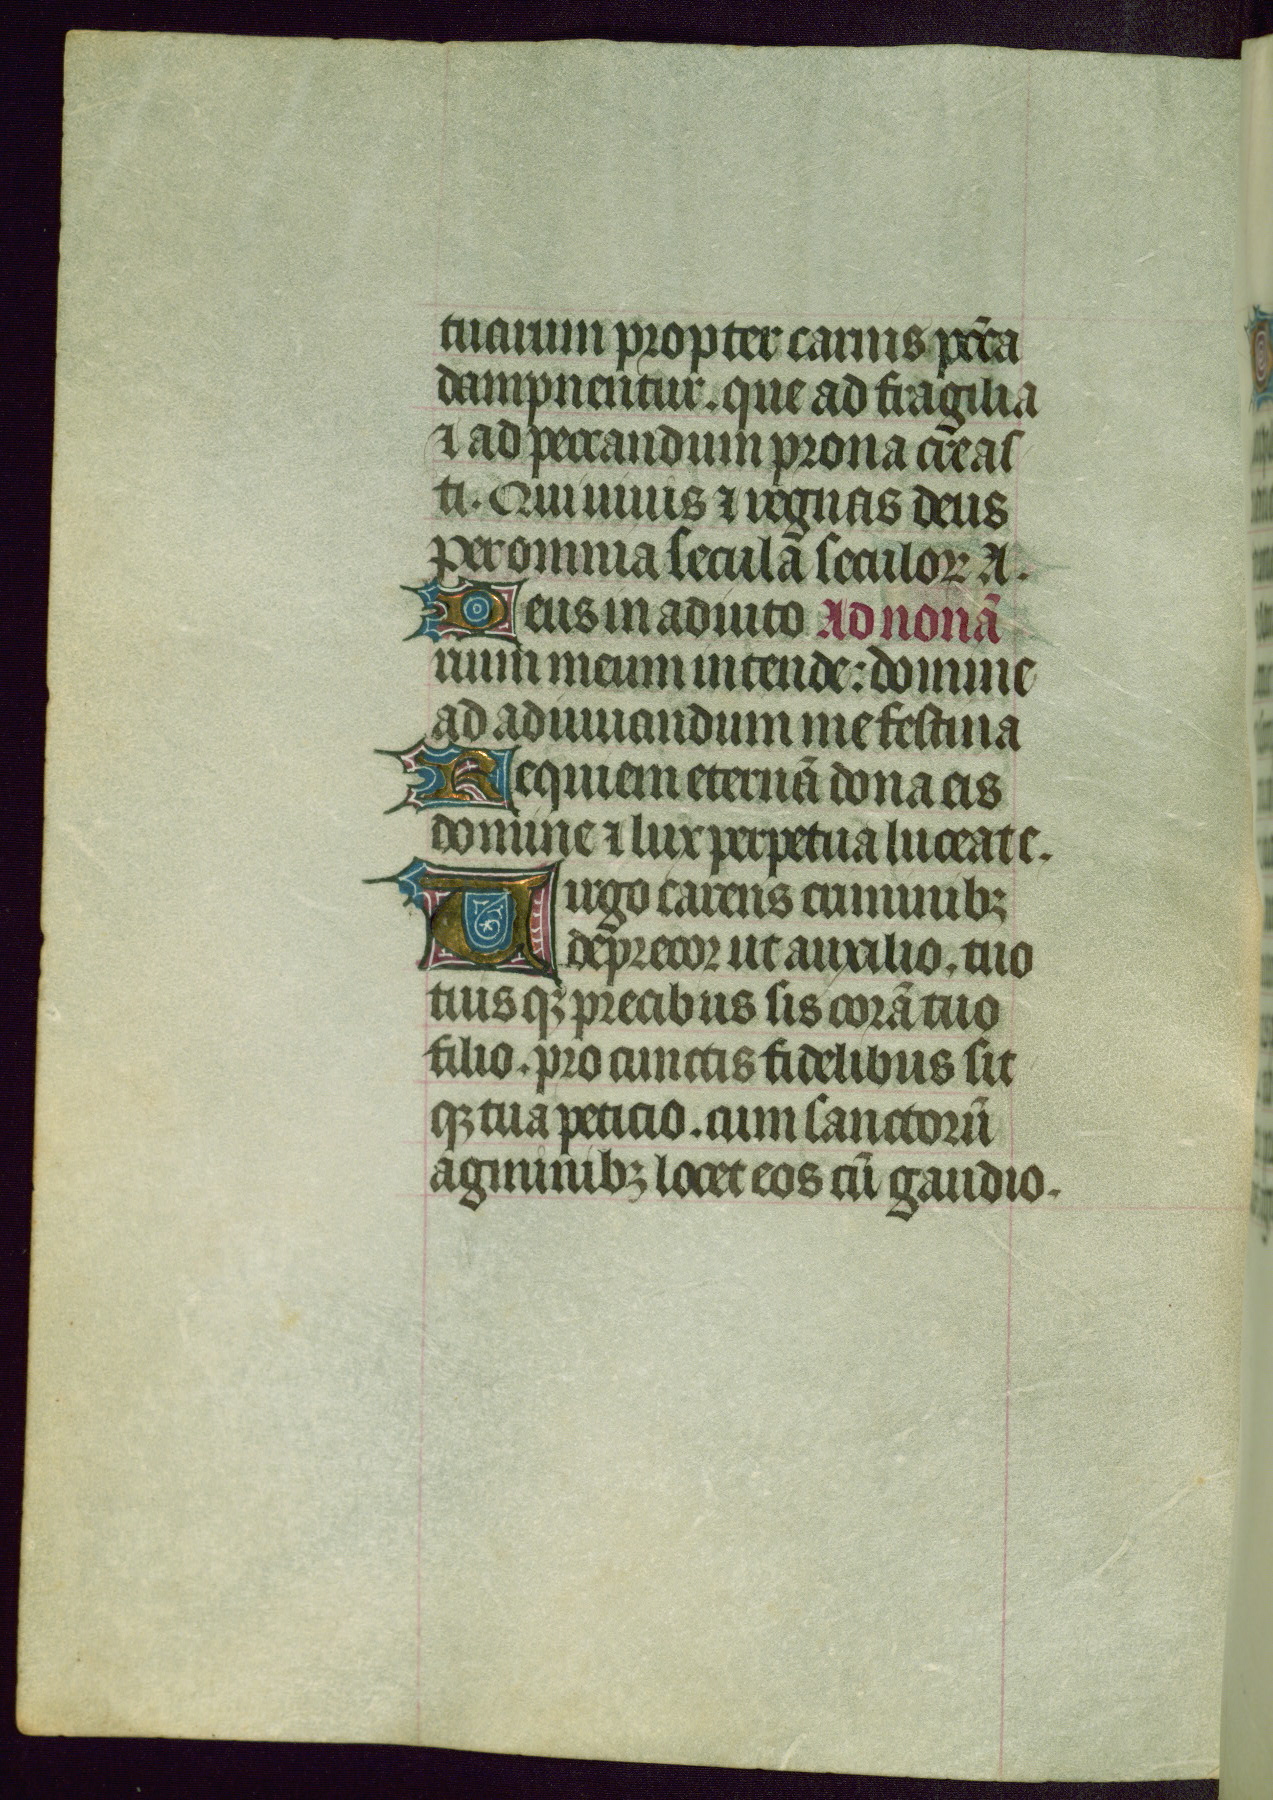 tuarum propter carnis pctā
dampnentur. que ad fragilia
⁊ ad peccandum prona creas
ti. Qui uiuis ⁊ regnas deus
per omnia seculā seculoꝝ A.
Deus in adiuto Ad nonā
rium meum intende: domine
ad adiuuandum me festina
Requiem eternā dona eis
domine ⁊ lux perpetua luceat e.
Uirgo carens criminibꝫ
deprecor ut auxilio. tuo
tuisqꝫ precibus sis corā tuo
filio. pro cunctis fidelibus sit
qꝫ tua peticio. cum sanctorū
agminibꝫ locet eos cū gaudio.